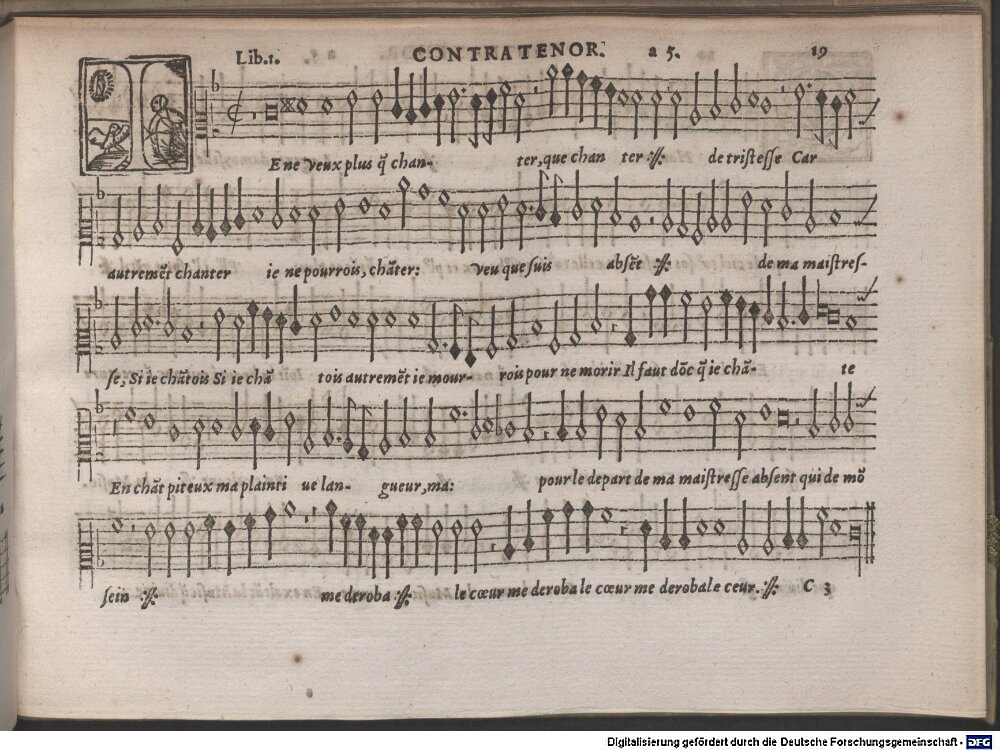 Lib.1. CONTRATENOR. a 5. 19
E ne veux plus q̃ chan- ter, que chan ter :||: de tristesse Car
autremẽt chanter ie ne pourrois, chãter: veu que suis absẽt :||: de ma maistres-
se, Si ie chãtois Si ie chã tois autremẽt ie mour- rois pour ne morir Il faut dõc q̃ ie chã- te
En chãt piteux ma plainti ue lan- gueur, ma: pour le depart de ma maistresse absent qui de mõ
sein :||: me deroba :||: le cœur me deroba le cœur me deroba le ceur. :||: C 3
Digitalisierung gefördert durch die Deutsche Forschungsgemeinschaft - DFG